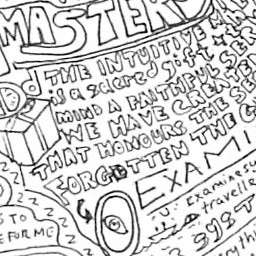 MASTER
THE INTUITIVE
is a sacred gift
MIND A FAITHFUL SER
WE HAVE CREATE
THAT HONOURS THE SE
FORGOTTEN THE G
EXAMI
Examine
travelle
SYST
S TO
E FOR ME